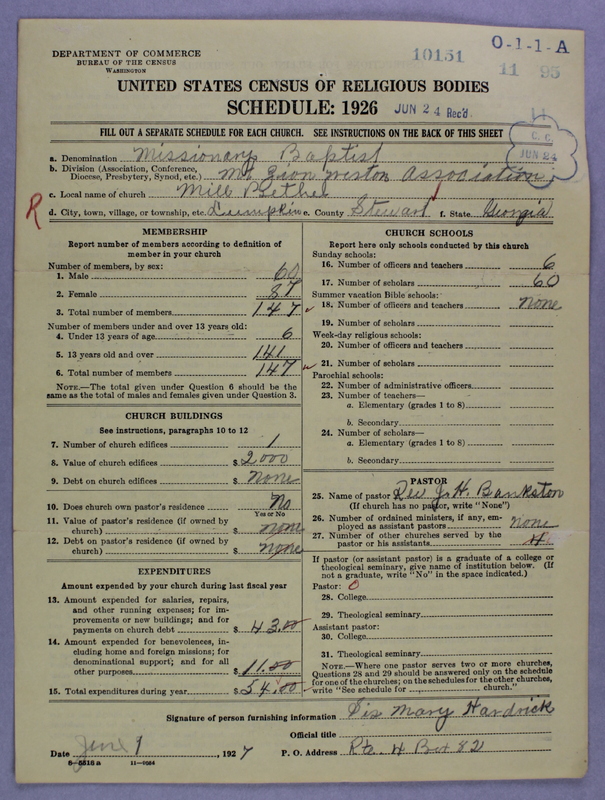 DEPARTMENT OF COMMERCE
BUREAU OF THE CENSUS
WASHINGTON
10151
O-1-1-A
11 95
11
UNITED STATES CENSUS OF RELIGIOUS BODIES
SCHEDULE: 1926
JUN 24 Rec'd.
C. C.
JUN 24
FILL OUT A SEPARATE SCHEDULE FOR EACH CHURCH. SEE INSTRUCTIONS ON THE BACK OF THIS SHEET
a. Denomination Missionary Baptist
b. Division (Association, Conference, Diocese, Presbytery, Synod, etc.) Mt Zion Association
c. Local name of church Mill Bethel
R
d. City, town, village, or township, etc. Lumpkin e. County Stewart f. State Georgia
MEMBERSHIP
Report number of members according to definition of member in your church
Number of members, by sex:
1. Male 60
2. Female 87
3. Total number of members 147
Number of members under and over 13 years old:
4. Under 13 years of age 6
5. 13 years old and over 141
6. Total number of members 147
NOTE.—The total given under Question 6 should be the same as the total of males and females given under Question 3.
CHURCH BUILDINGS
See instructions, paragraphs 10 to 12
7. Number of church edifices 1
8. Value of church edifices $ 2000
9. Debt on church edifices $ none
10. Does church own pastor's residence No
Yes or No
11. Value of pastor's residence (if owned by church) $ none
12. Debt on pastor's residence (if owned by church) $ none
EXPENDITURES
Amount expended by your church during last fiscal year
13. Amount expended for salaries, repairs, and other running expenses; for improvements or new buildings; and for payments on church debt $ 43.00
14. Amount expended for benevolences, including home and foreign missions; for denominational support; and for all other purposes $ 11.00
15. Total expenditures during year $ 54.00
CHURCH SCHOOLS
Report here only schools conducted by this church
Sunday schools:
16. Number of officers and teachers 6
17. Number of scholars 60
Summer vacation Bible schools:
18. Number of officers and teachers none
19. Number of scholars
Week-day religious schools:
20. Number of officers and teachers
21. Number of scholars
Parochial schools:
22. Number of administrative officers
23. Number of teachers—
a. Elementary (grades 1 to 8)
b. Secondary
24. Number of scholars—
a. Elementary (grades 1 to 8)
b. Secondary
PASTOR
25. Name of pastor Rev J. H. Bankston
(If church has no pastor, write "None")
26. Number of ordained ministers, if any, employed as assistant pastors none
27. Number of other churches served by the pastor or his assistants 4
If pastor (or assistant pastor) is a graduate of a college or theological seminary, give name of institution below. (If not a graduate, write "No" in the space indicated.)
Pastor: O
28. College
29. Theological seminary
Assistant pastor:
30. College
31. Theological seminary
NOTE.—Where one pastor serves two or more churches, Questions 28 and 29 should be answered only on the schedule for one of the churches; on the schedules for the other churches, write "See schedule for church."
Signature of person furnishing information Sis Mary Hardrick
Official title
Date June 9, 1927 P. O. Address Rte. 4 Box 82
8—5516 a 11—9064